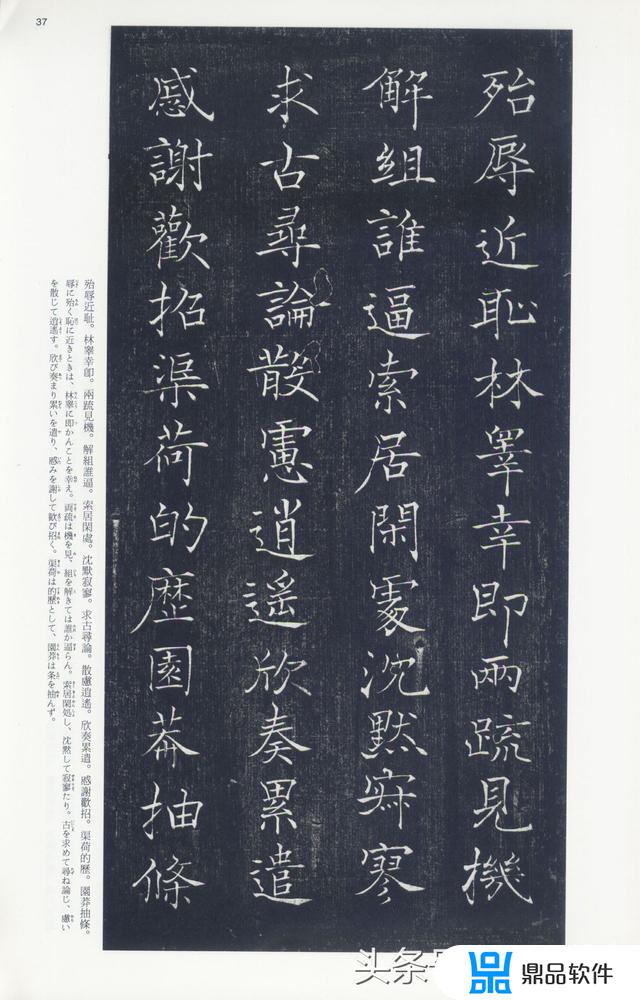 37
殆辱近恥林睾幸即兩疏見機
解組誰逼索居閑處沈默寂寥
求古尋論散慮逍遙欣奏累遣
慼謝歡招渠荷的歷園莽抽條
殆辱近耻。林睾幸卽。兩疏見機。解組誰逼。索居閑處。沈默寂寥。求古尋論。散慮逍遙。欣奏累遣。慼謝歡招。渠荷的歷。園莽抽條。
辱に殆く恥に近きときは、林睾に即かんことを幸え。両疏は機を見、組を解きては誰か逼らん。索居閑処し、沈黙して寂寥たり。古を求めて尋ね論じ、慮い
を散じて逍遙す。欣び奏まり累いを遣り、慼みを謝して歓び招く。渠荷は的歴として、園莽は条を抽んず。
头条
鼎品软件